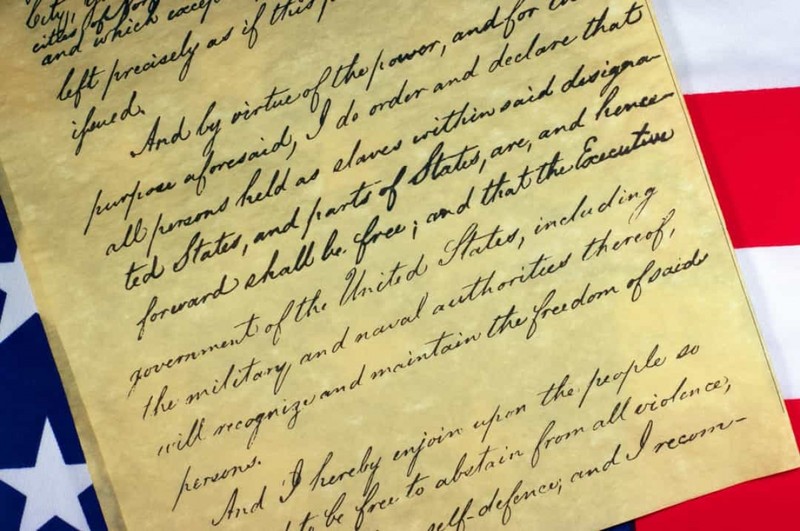 City,
cities of
and which except
left precisely as if this
issued.
And by virtue of the power, and for
purpose aforesaid, I do order and declare that
all persons held as slaves within said designa-
ted States, and parts of States, are, and hence-
forward shall be free; and that the Executive
government of the United States, including
the military and naval authorities thereof,
will recognize and maintain the freedom of said
persons.
And I hereby enjoin upon the people so
to be free to abstain from all violence,
self-defence; and I recom-